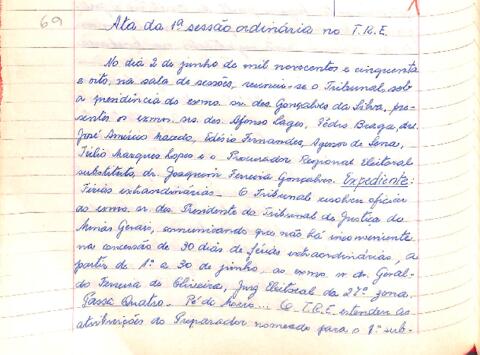 69
Ata da 1ª sessão ordinária no T.R.E.
No dia 2 de junho de mil novecentos e cinquenta
e oito, na sala de sessões, reuniu-se o Tribunal, sob
a presidência do exmo. sr. des. Gonçalves da Silva, pre-
sentes os exmos. srs. des. Afonso Lages, Pedro Braga, drs.
José Américo Macedo, Edésio Fernandes, Agenor de Sena,
Túlio Marques Lopes e o Procurador Regional Eleitoral
substituto, dr. Joaquim Ferreira Gonçalves. Expediente:
Férias extraordinárias - O Tribunal resolveu oficiar
ao exmo. sr. des. Presidente do Tribunal de Justiça de
Minas Gerais, comunicando que não há inconveniente
na concessão de 30 dias de férias extraordinárias, a
partir de 1º a 30 de junho ao exmo. sr. dr. Geral-
do Ferreira de Oliveira, Juiz Eleitoral da 27ª zona,
Passa Quatro. - Pé do Morro... O T.R.E. estendeu as
atribuições do Preparador nomeado para o 1º sub-